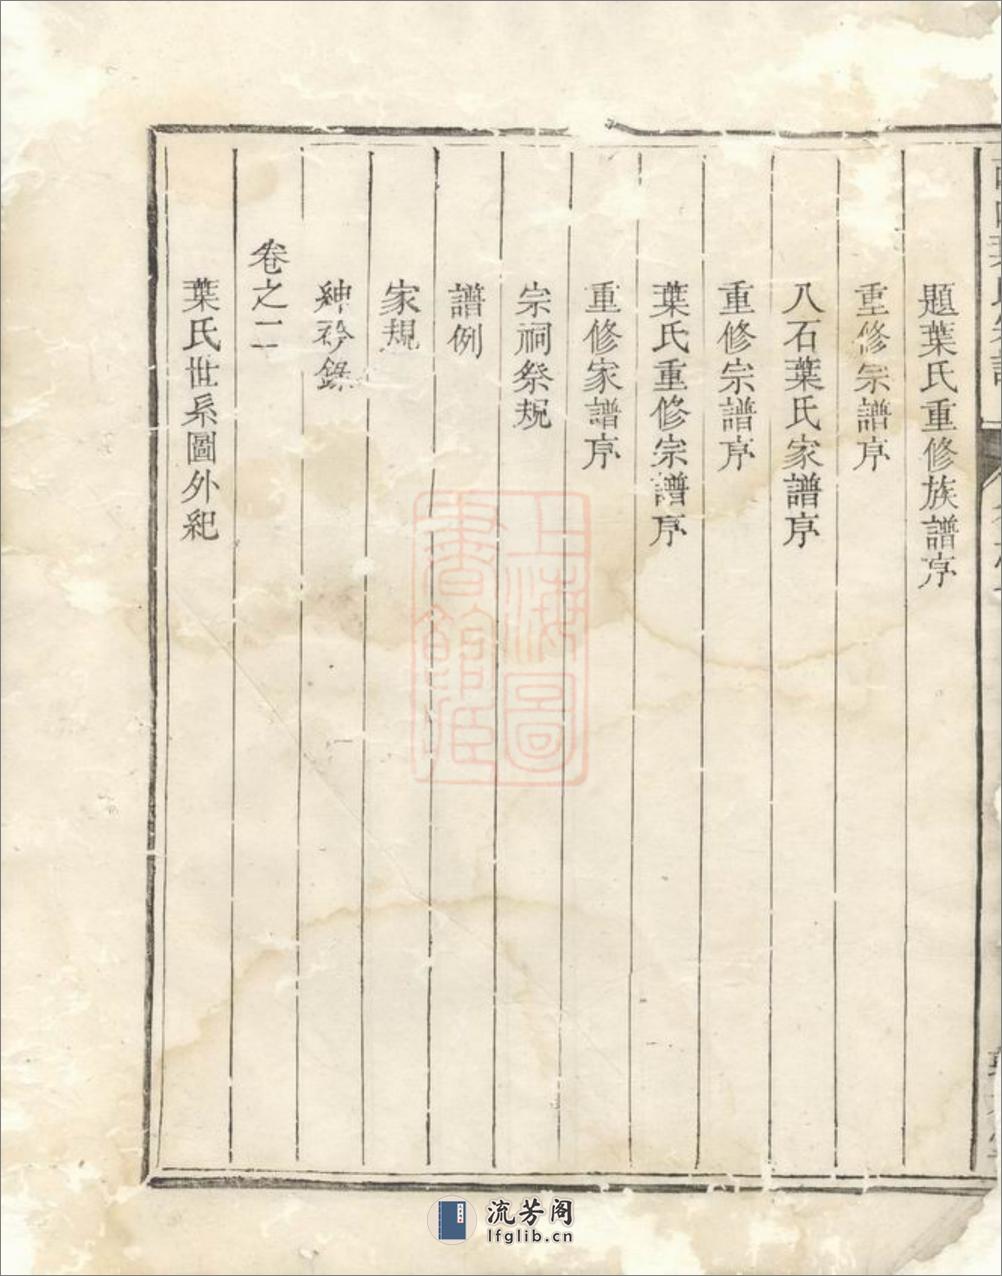 題葉氏重修族譜序
重修宗譜序
八石葉氏家譜序
重修宗譜序
葉氏重修宗譜序
重修家譜序
宗祠祭規
譜例
家規
紳衿錄
卷之二
葉氏世系圖外紀
上海圖
書館藏
流芳阁
lfglib.cn